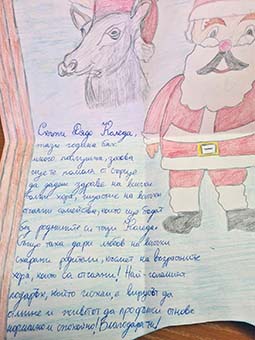 Скъпи Дядо Коледа,
тази година бях
много послушна, затова
ще те помоля от сърце
да дадеш здраве на всички
болни хора, щастие на всички
останали семейства, които ще бъдат
без роднините си тази Коледа.
Също така дари любов на всички
скарани родители, късмет на възрастните
хора, които са отчаяни! Най-големият
подарък, който искам, е вирусът да
отмине и животът да продължи отново
нормално и спокойно! Благодаря ти!